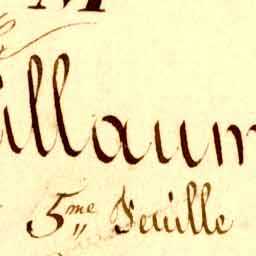 M
illaum
5me Feuille